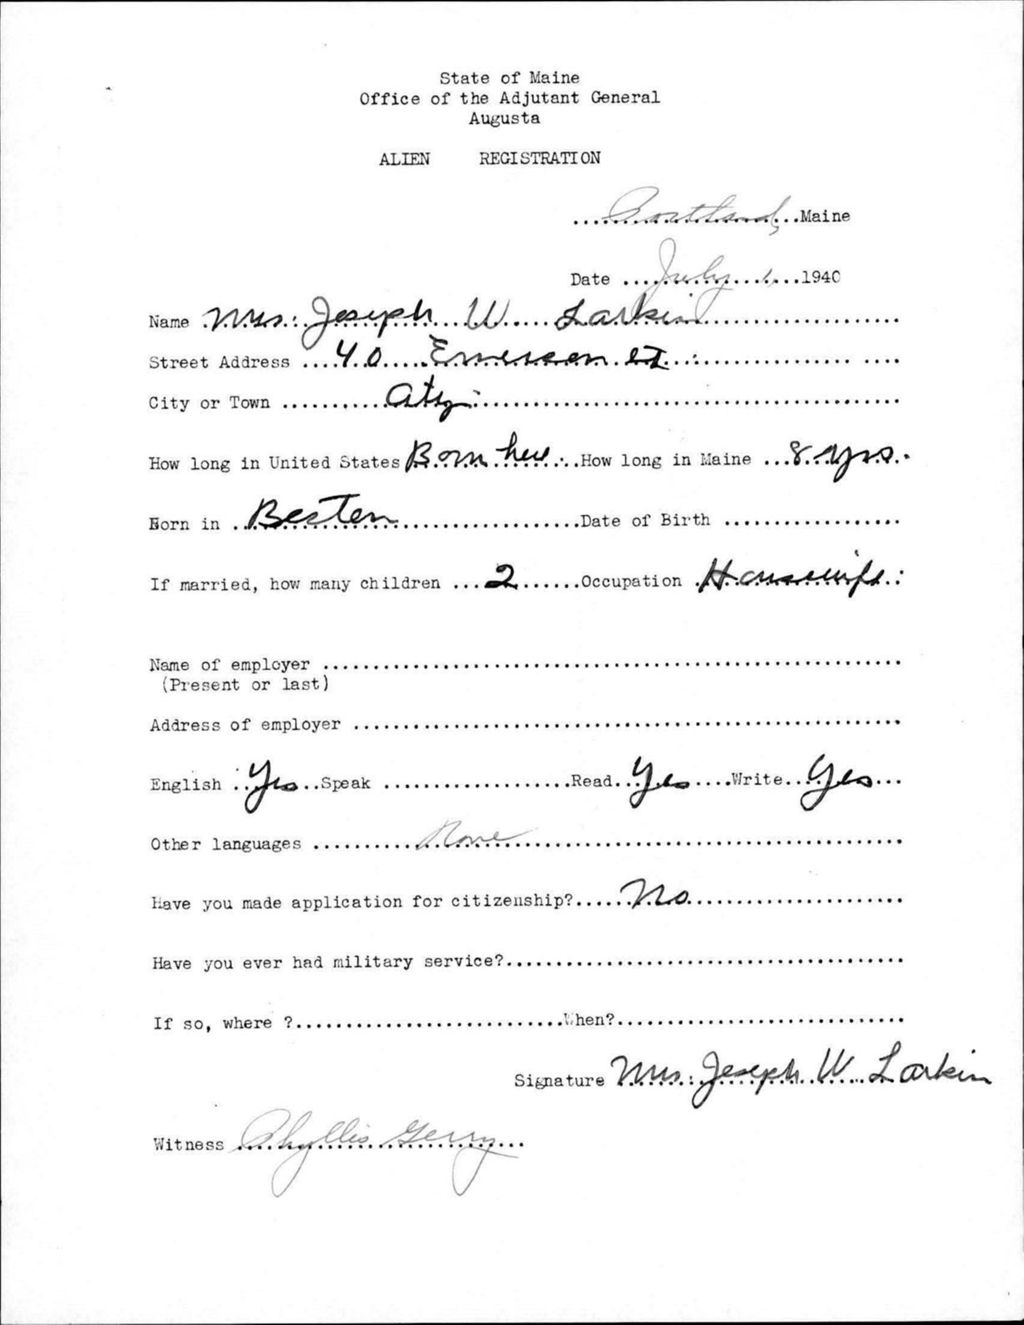 State of Maine
Office of the Adjutant General
Augusta
ALIEN REGISTRATION
Portland, Maine
Date July 1, 1940
Name Mrs. Joseph W Larkin
Street Address 40 Emerson st.
City or Town City
How long in United States Born here How long in Maine 8 yrs.
Born in Boston Date of Birth
If married, how many children 2 Occupation Housewife
Name of employer
(Present or last)
Address of employer
English Yes Speak Read Yes Write Yes
Other languages None
Have you made application for citizenship? No
Have you ever had military service?
If so, where ? When?
Signature Mrs. Joseph W. Larkin
Witness Phyllis Gerry